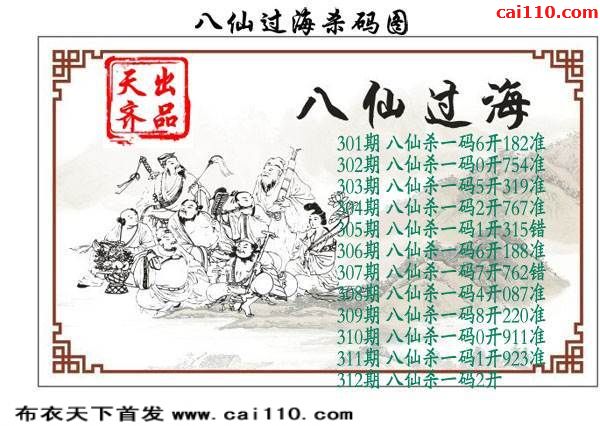 cai110.com
八仙过海杀码图
天齐出品
八仙过海
301期 八仙杀一码6开182准
302期 八仙杀一码0开754准
303期 八仙杀一码5开319准
304期 八仙杀一码2开767准
305期 八仙杀一码1开315错
306期 八仙杀一码6开188准
307期 八仙杀一码7开762错
308期 八仙杀一码4开087准
309期 八仙杀一码8开220准
310期 八仙杀一码0开911准
311期 八仙杀一码1开923准
312期 八仙杀一码2开
布衣天下首发 www.cai110.com